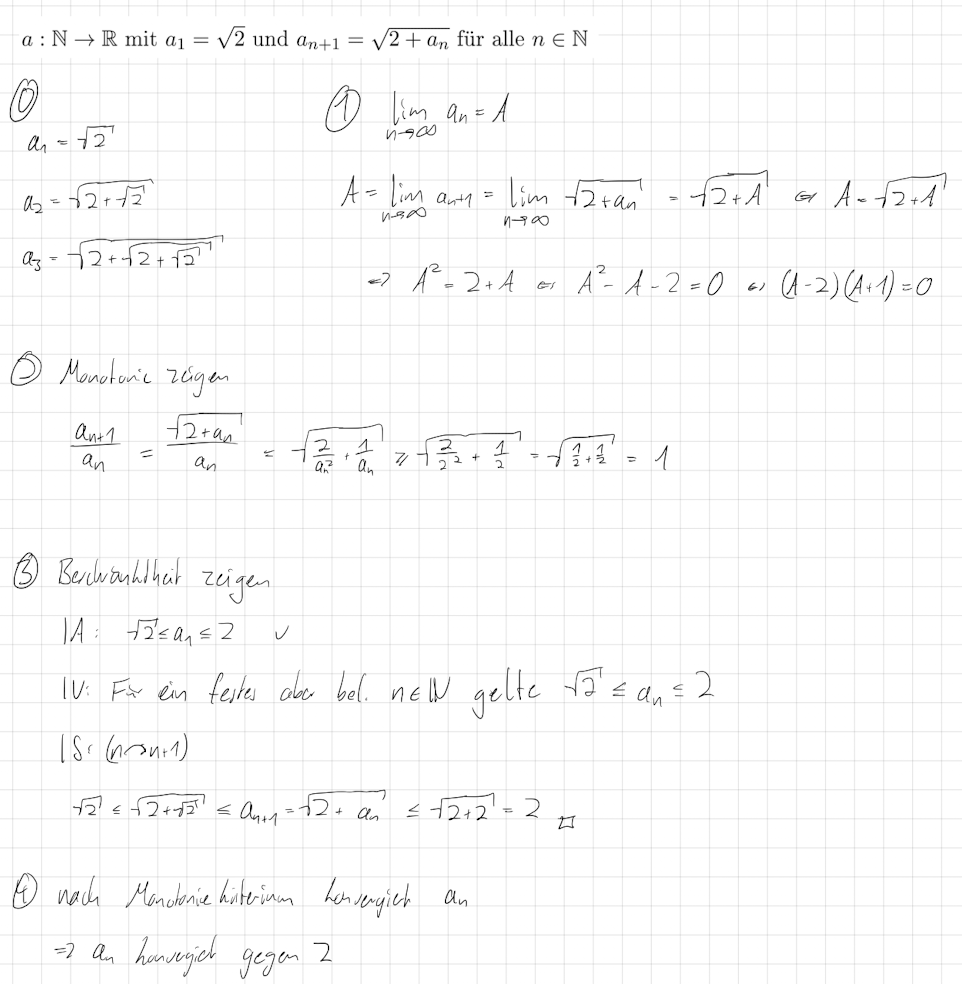 a : ℕ → ℝ mit a₁ = √2 und aₙ₊₁ = √(2 + aₙ) für alle n ∈ ℕ
⓪
a₁ = √2
a₂ = √(2+√2)
a₃ = √(2+√(2+√2))
① lim_{n→∞} aₙ = A
A = lim_{n→∞} aₙ₊₁ = lim_{n→∞} √(2+aₙ) = √(2+A) ⇔ A = √(2+A)
⇒ A² = 2+A ⇔ A² - A - 2 = 0 ⇔ (A-2)(A+1) = 0
② Monotonie zeigen
aₙ₊₁/aₙ = √(2+aₙ)/aₙ = √(2/aₙ² + 1/aₙ) ≥ √(2/2² + 1/2) = √(1/2 + 1/2) = 1
③ Beschränktheit zeigen
IA: √2 ≤ a₁ ≤ 2 ✓
IV: Für ein festes aber bel. n∈ℕ gelte √2 ≤ aₙ ≤ 2
IS: (n→n+1)
√2 ≤ √(2+√2) ≤ aₙ₊₁ = √(2+aₙ) ≤ √(2+2) = 2 □
④ nach Monotoniekriterium konvergiert aₙ
⇒ aₙ konvergiert gegen 2